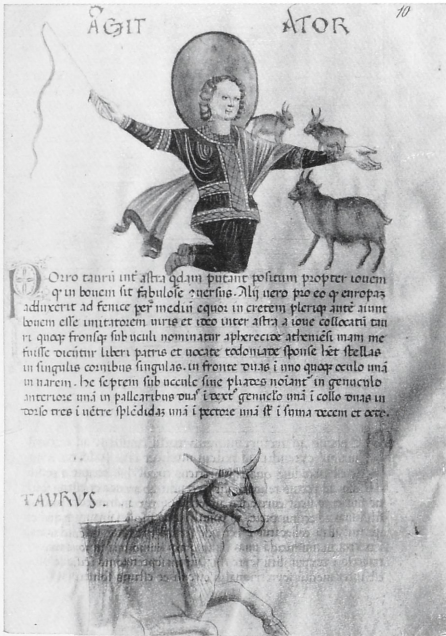 AGIT ATOR
10
Porro taurū int̄ astra qdam putant positum propter iouem
q in bouem sit fabulose ꝯuersus. Alij uero pro eo q enropaz
aduixerit ad fenice per mediū equor in cretem pleriq antē aiunt
bouem esse imitatorem uiris et ideo inter astra a ioue collocatū tau
ri quoqꝫ fronsqꝫ subuculi nominatur apherecide atheniēsi mam me
fuisse dicūtur liberi patris et uocate todoniade sponse hēt stellas
in singulis cornibus singulas. in fronte duas i uno quoqꝫ oculo unā
in narem. he septem subuccule siue pliades noiant̄ in genuculo
anteriore unā in pallearibus duas i dext° genuclo unā i collo duas in
torso tres i uētre splēdidaz unā i pectore unā st̄ i sūma decem et octo.
TAVRVS.